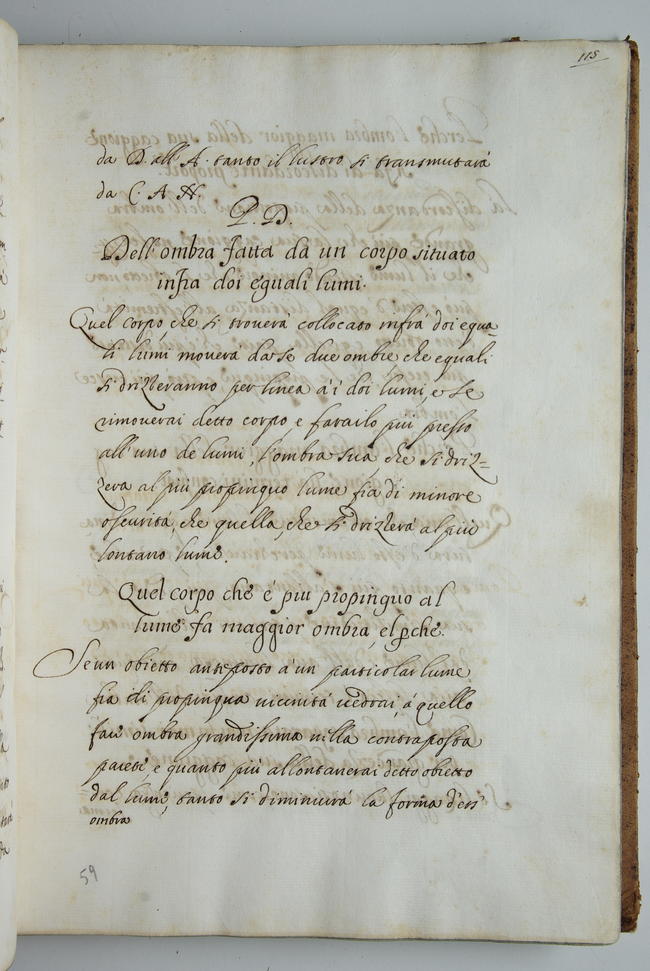 115
da D. all' A. tanto il lustro si transmutará
da C. A N.
P. D.
Dell' ombra fatta da un corpo situato
infra doi eguali lumi.
Quel corpo, che si troverá collocato infrá doi equa
li lumi moverá da se due ombre che equali
si drizzeranno per linea á i doi lumi, e se
rimoverai detto corpo, e farailo piú presso
all' uno de lumi, l'ombra sua che si driz=
zerá al piú propinquo lume fia di minore
oscuritá, che quella, che si drizzerá al piú
lontano lume.
Quel corpo che é piu propinquo al
lume fa maggior ombra, el pche.
Se un obietto anteposto á un particolar lume
fia di propinqua vicinitá vedrai, á quello
fare ombra grandissima nella contraposta
parete, e quanto piú allontanerai detto obietto
dal lume, tanto si diminuirá la forma d'ess'
ombra
59